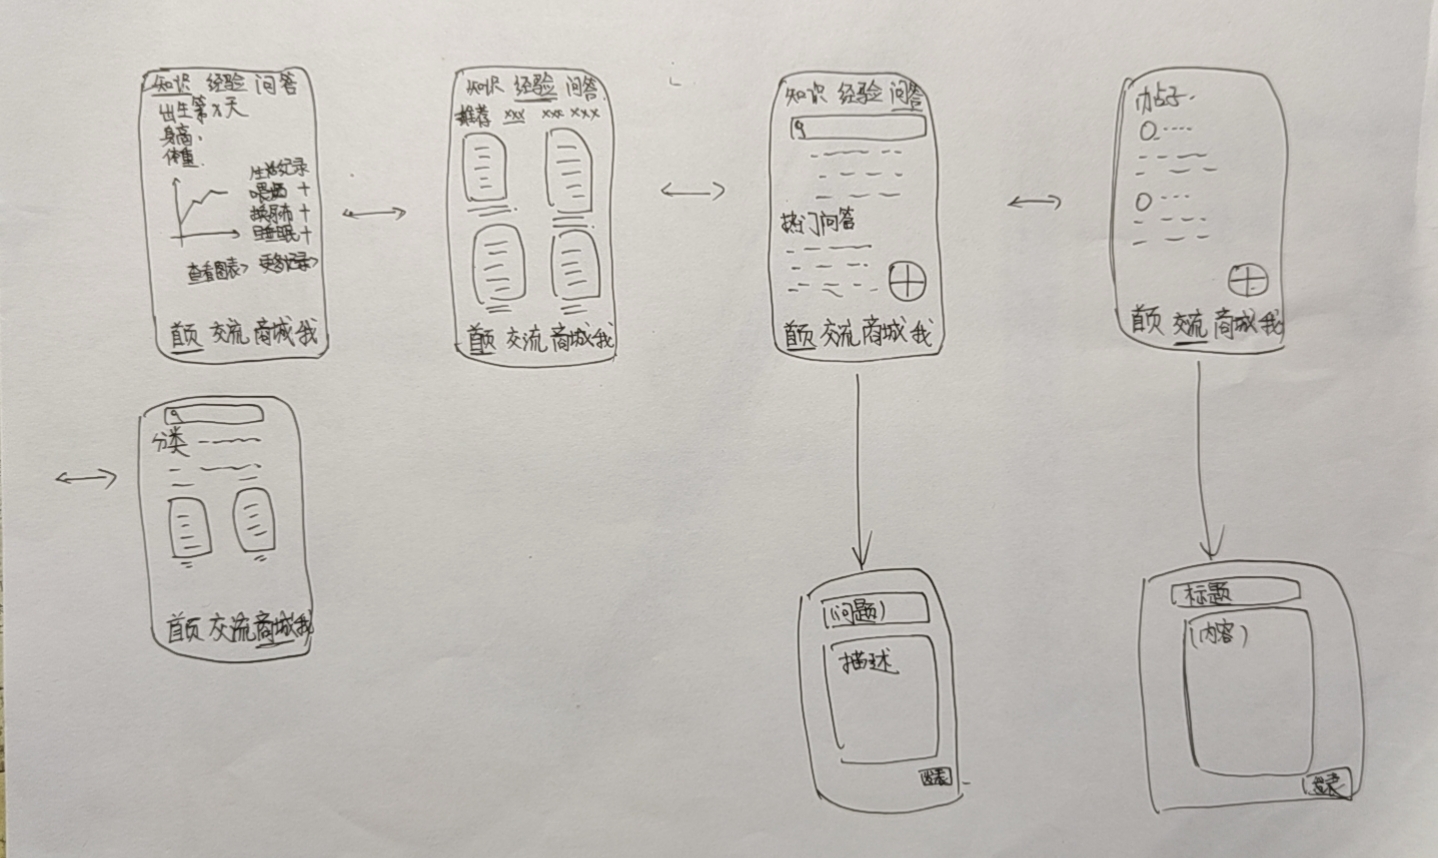 知识 经验 问答
出生第X天
身高:
体重:
生活记录
喂奶 +
换尿布 +
睡眠 +
查看图表> 更多记录>
首页 交流 商城 我
知识 经验 问答
推荐 xxx xxx xxx
首页 交流 商城 我
知识 经验 问答
热门问答
首页 交流 商城 我
帖子
首页 交流 商城 我
分类
首页 交流 商城 我
(问题)
描述
标题
(内容)